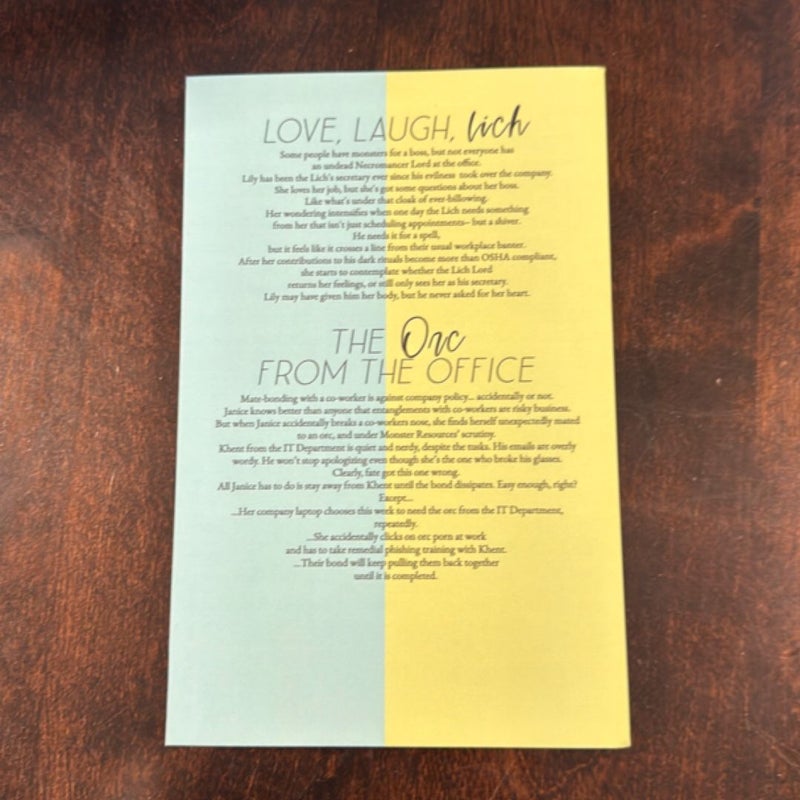 LOVE, LAUGH, lich
Some people have monsters for a boss, but not everyone has
an undead Necromancer Lord at the office.
Lily has been the Lich's secretary ever since his evilness took over the company.
She loves her job, but she's got some questions about her boss.
Like what's under that cloak of ever-billowing.
Her wondering intensifies when one day the Lich needs something
from her that isn't just scheduling appointments– but a shiver.
He needs it for a spell,
but it feels like it crosses a line from their usual workplace banter.
After her contributions to his dark rituals become more than OSHA compliant,
she starts to contemplate whether the Lich Lord
returns her feelings, or still only sees her as his secretary.
Lily may have given him her body, but he never asked for her heart.
THE Orc
FROM THE OFFICE
Mate-bonding with a co-worker is against company policy... accidentally or not.
Janice knows better than anyone that entanglements with co-workers are risky business.
But when Janice accidentally breaks a co-workers nose, she finds herself unexpectedly mated
to an orc, and under Monster Resources' scrutiny.
Khent from the IT Department is quiet and nerdy, despite the tusks. His emails are overly
wordy. He won't stop apologizing even though she's the one who broke his glasses.
Clearly, fate got this one wrong.
All Janice has to do is stay away from Khent until the bond dissipates. Easy enough, right?
Except...
...Her company laptop chooses this week to need the orc from the IT Department,
repeatedly.
...She accidentally clicks on orc porn at work
and has to take remedial phishing training with Khent.
...Their bond will keep pulling them back together
until it is completed.